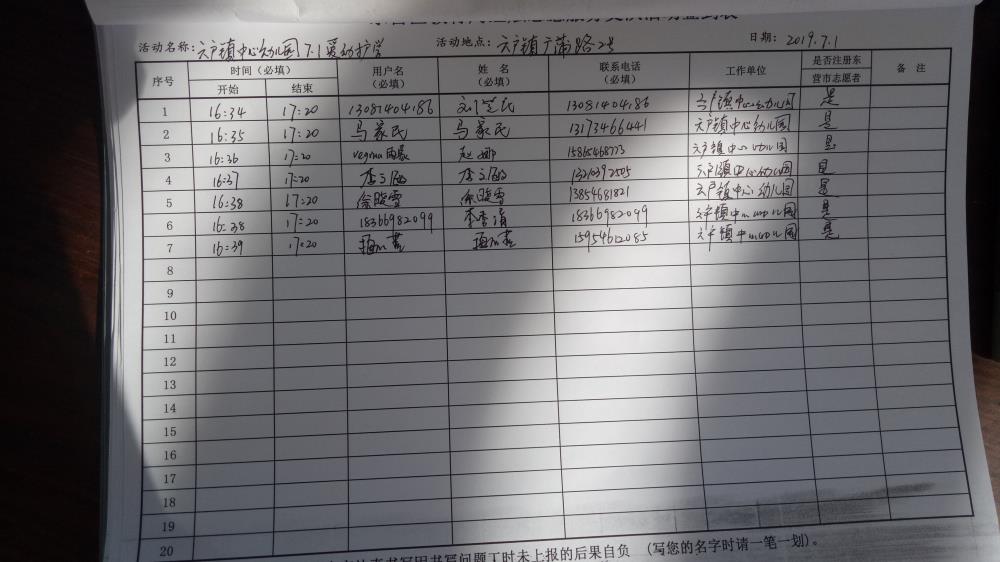 活动名称：六户镇中心幼儿园7.1爱幼护学 活动地点：六户镇广蒲路2号 日期：2019.7.1
序号 时间（必填） 用户名（必填） 姓名（必填） 联系电话（必填） 工作单位 是否注册东营市志愿者 备注
开始 结束
1 16:34 17:20 13081404186 13081404186 六户镇中心幼儿园 是
2 16:35 17:20 马家民 马家民 13173466441 六户镇中心幼儿园 是
3 16:36 17:20 赵娜 15865468773 六户镇中心幼儿园 是
4 16:37 17:20 13210392505 六户镇中心幼儿园 是
5 16:38 17:20 徐晓雪 徐晓雪 13854681821 六户镇中心幼儿园 是
6 16:38 17:20 18366982099 18366982099 六户镇中心幼儿园 是
7 16:39 17:20 15954612085 六户镇中心幼儿园 是
8
9
10
11
12
13
14
15
16
17
18
19
20
书写问题工时未上报的后果自负（写您的名字时请一笔一划）。